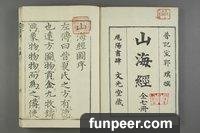 晉記室郭璞撰
山海經 全七冊
尾陽書肆 文光堂藏
山海經圖序
左傳曰昔夏氏之方有德
也遠方圖物貢金九牧鑄
鼎象物百物而爲之備使
funpeer.com